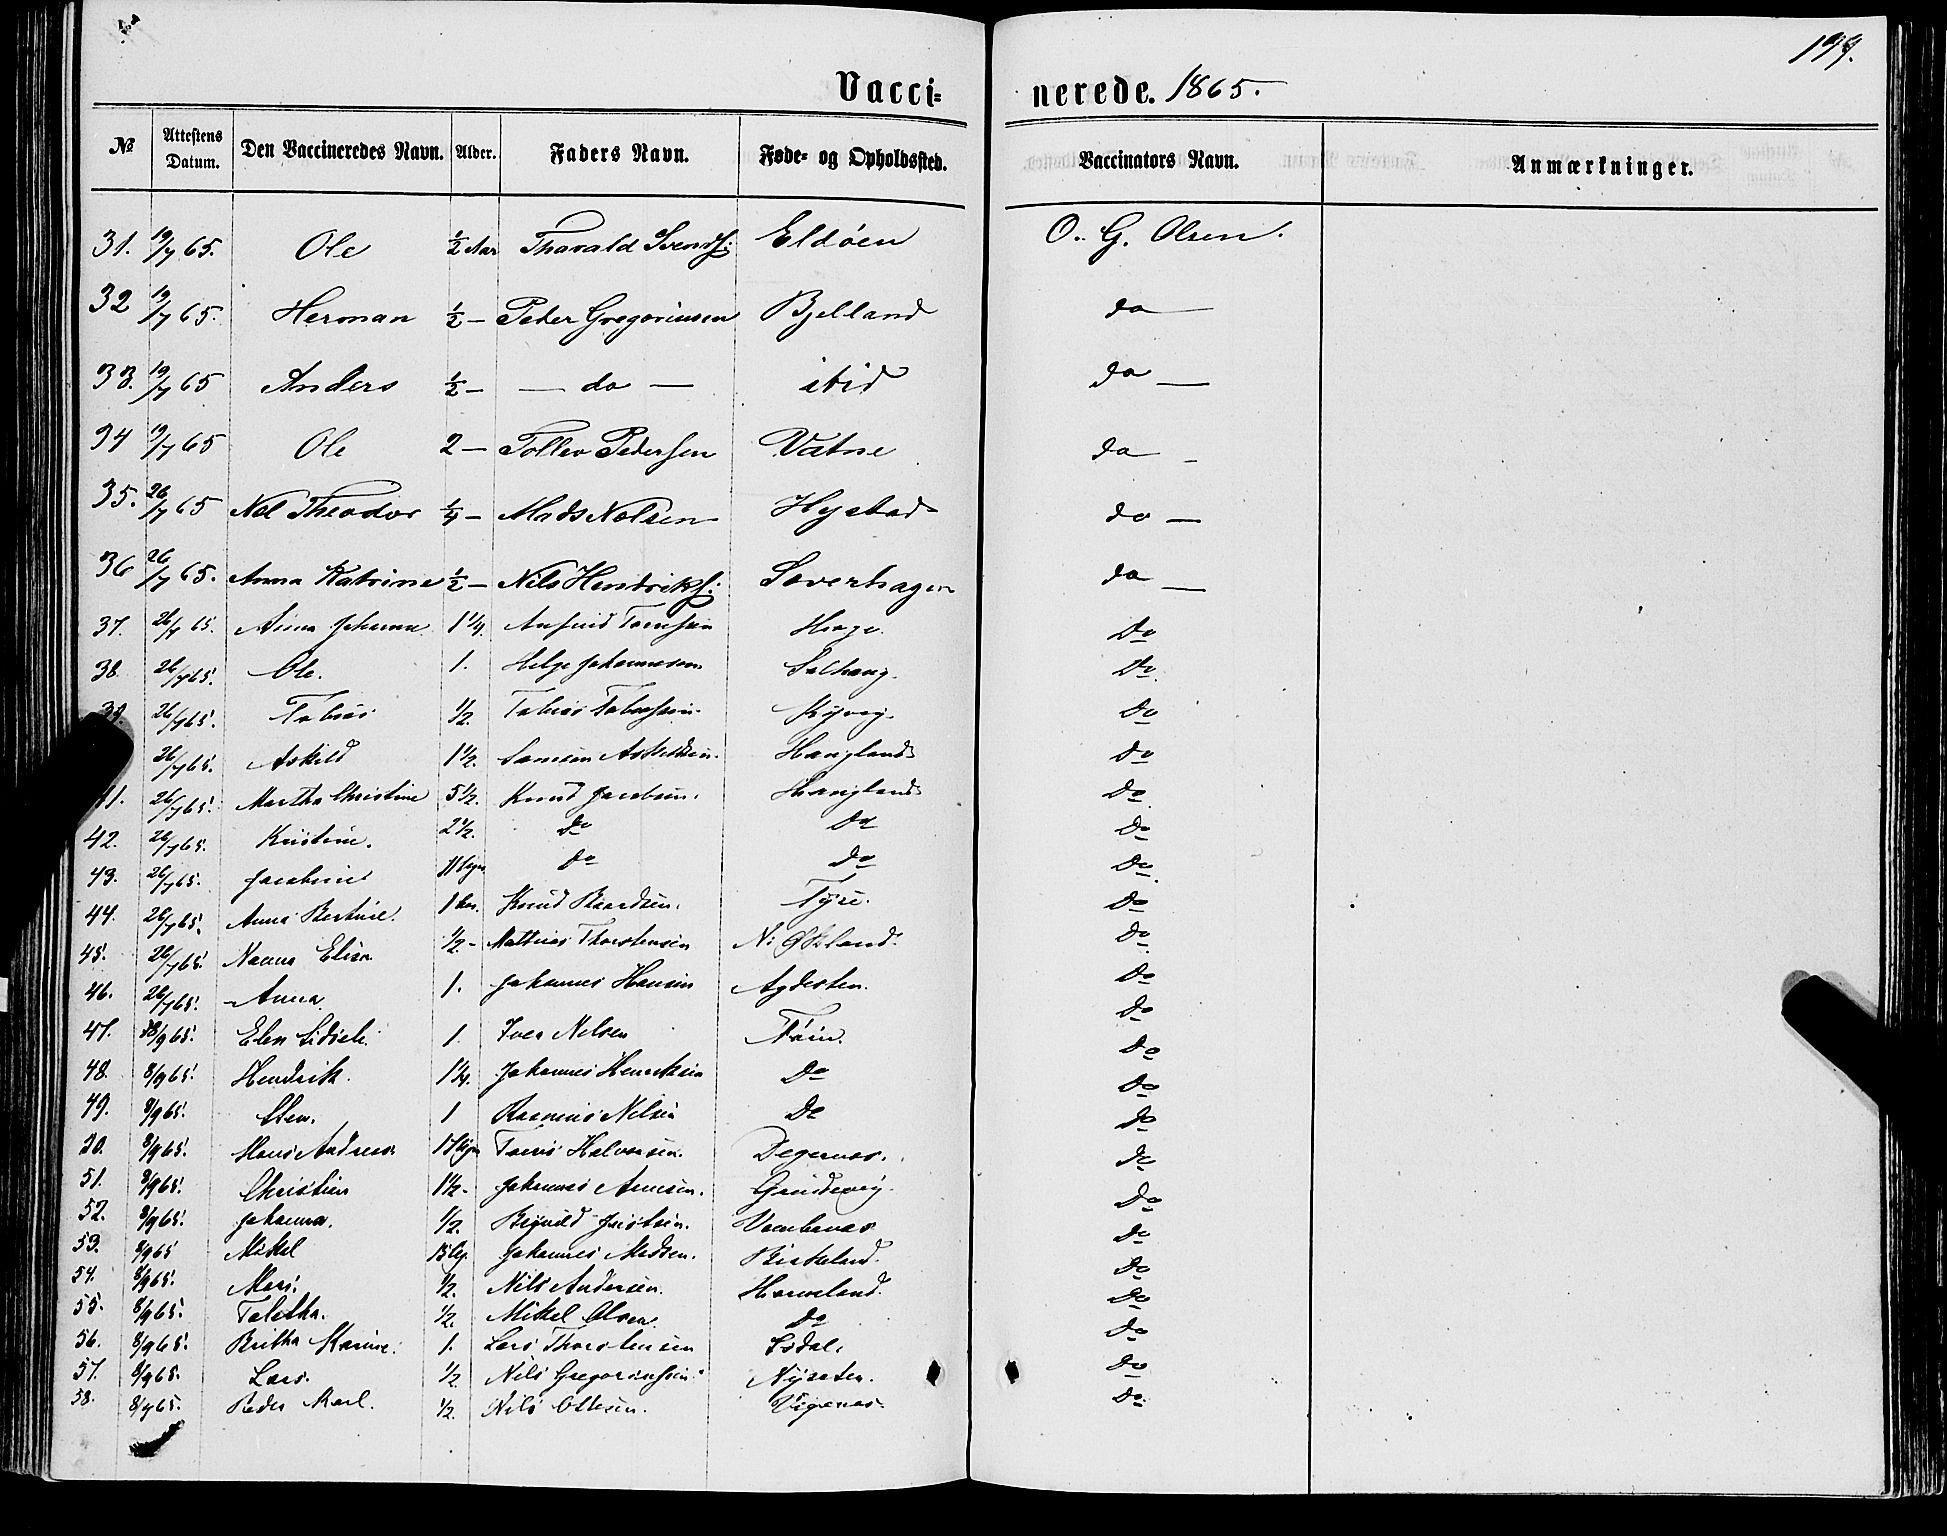 199.
Vaccinerede. 1865.
№ Attestens Datum. Den Vaccineredes Navn. Alder. Faders Navn. Føde- og Opholdssted. Vaccinators Navn. Anmærkninger.
31. 19/7 65. Ole ½ Aar Tharald Svends: Eldøen O. G. Olsen.
32 19/7 65. Herman ½ — Peder Gregoriussen Bjelland do —
33. 19/7 65 Anders ½ — — do — ibid do —
34 19/7 65 Ole 2 — Tollev Pedersen Vatne do —
35. 26/7 65 Nol Theodor ¼ — Mads Nolsen Hystad do —
36 26/7 65. Anna Katrine ½ — Nils Hendriks: Soverhagen do —
37. 26/7 65. Anna Johanna 1¼. Hage. Do
38. 26/7 65. Ole. 1. Helge Johannesen Do
39. 26/7 65. Tobias ½. Tobias Do
26/7 65. Askild 1½. Samson Askildsen. Hangland Do
41. 26/7 65. Martha Christine 5½. Knud Jacobsen. Hangland Do
42. 26/7 65. Kristine. 2½. Do Do Do
43. 26/7 65. Jacobine 11 Do Do Do
44. 26/7 65. Anna Bertine. 1 Aar. Knud Baardsen. Tyse. Do
45. 26/7 65. Elisa ½ - Mathias Thorstensen N: Økland. Do
46. 26/7 65. Anna 1. Johannes Hansen Agdesten. Do
47. 8/9 65. Elen 1. Iver Nilsen Do
48. 8/9 65. Hendrik. 1¼. Johannes Henriksen Do Do
49. 8/9 65. Elen. 1 Rasmus Nilsen Do Do
50. 8/9 65. Hans Andreas Halvorsen. Degernæs. Do
51. 8/9 65. Christian 1½. Johannes Arnesen. Do
52. 8/9 65. Johanna. ½. Do
53. 8/9 65 Mikel Johannes Madsen. Birkeland. Do
54. 8/9 65. ½. Nils Andersen. Do
55. 8/9 65. Taletha. ½. Mikel Olsen. Do Do
56. 8/9 65. Britha Karine. 1. Lars Thorstensen Isdal. Do
57. 8/9 65. Lars. ½ Nils Gregoriussen. Nysæter. Do
58. 8/9 65. Peder Karl. ½. Nils Ottesen. Vigenes. Do